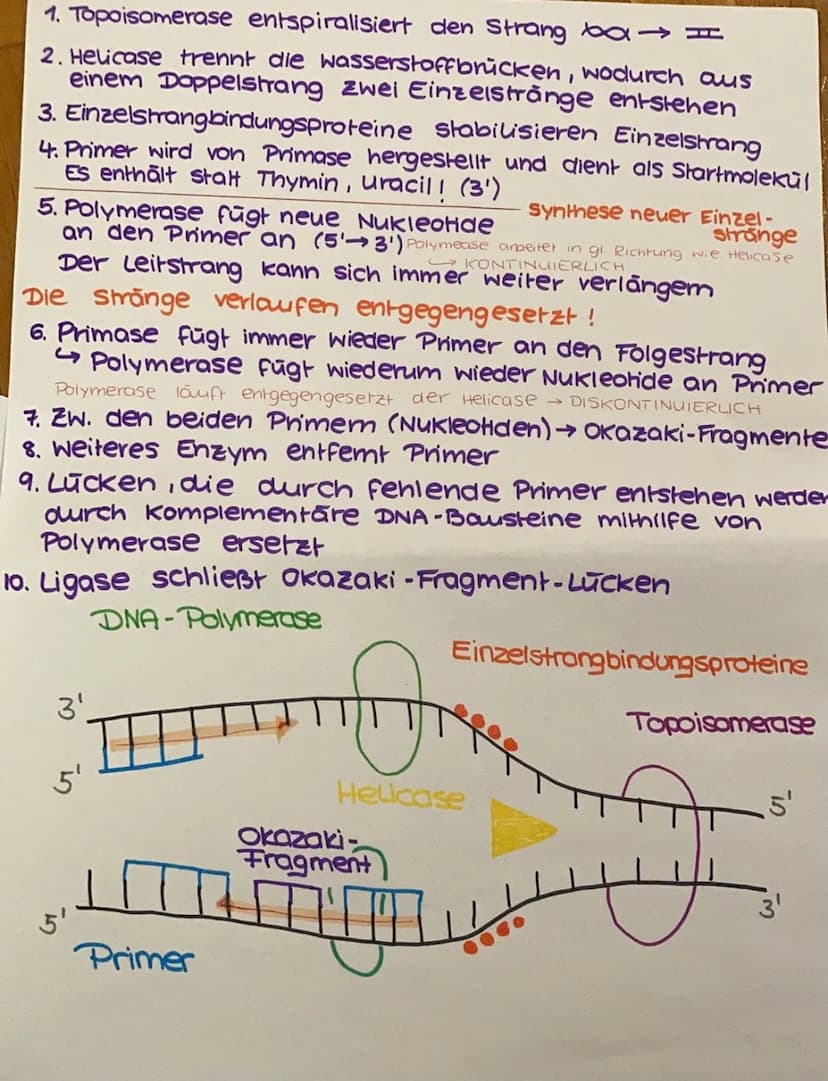 1. Topoisomerase entspiralisiert den Strang → 
2. Helicase trennt die Wasserstoffbrücken, wodurch aus
einem Doppelstrang zwei Einzelstränge entstehen
3. Einzelstrangbindungsproteine stabilisieren Einzelstrang
4. Primer wird von Primase hergestellt und dient als Startmolekül
Es enthält statt Thymin, Uracil! (3')
5. Polymerase fügt neue Nukleotide
an den Primer an (5'→3')
Synthese neuer Einzel-
stränge
Polymease arbeitet in gl. Richtung wie Helicase
↳ KONTINUIERLICH
Der Leitstrang kann sich immer weiter verlängern
Die Stränge verlaufen entgegengesetzt!
6. Primase fügt immer wieder Primer an den Folgestrang
↳ Polymerase fügt wiederum wieder Nukleotide an Primer
Polymerase läuft entgegengesetzt der Helicase → DISKONTINUIERLICH
7. Zw. den beiden Primern (Nukleotiden) → Okazaki-Fragmente
8. Weiteres Enzym entfernt Primer
9. Lücken, die durch fehlende Primer entstehen werden
durch Komplementäre DNA-Bausteine mithilfe von
Polymerase ersetzt
10. Ligase schließt Okazaki-Fragment-Lücken
DNA-Polymerase
Einzelstrangbindungsproteine
3'
Topoisomerase
5'
Helicase
5'
Okazaki-
Fragment
5'
3'
Primer